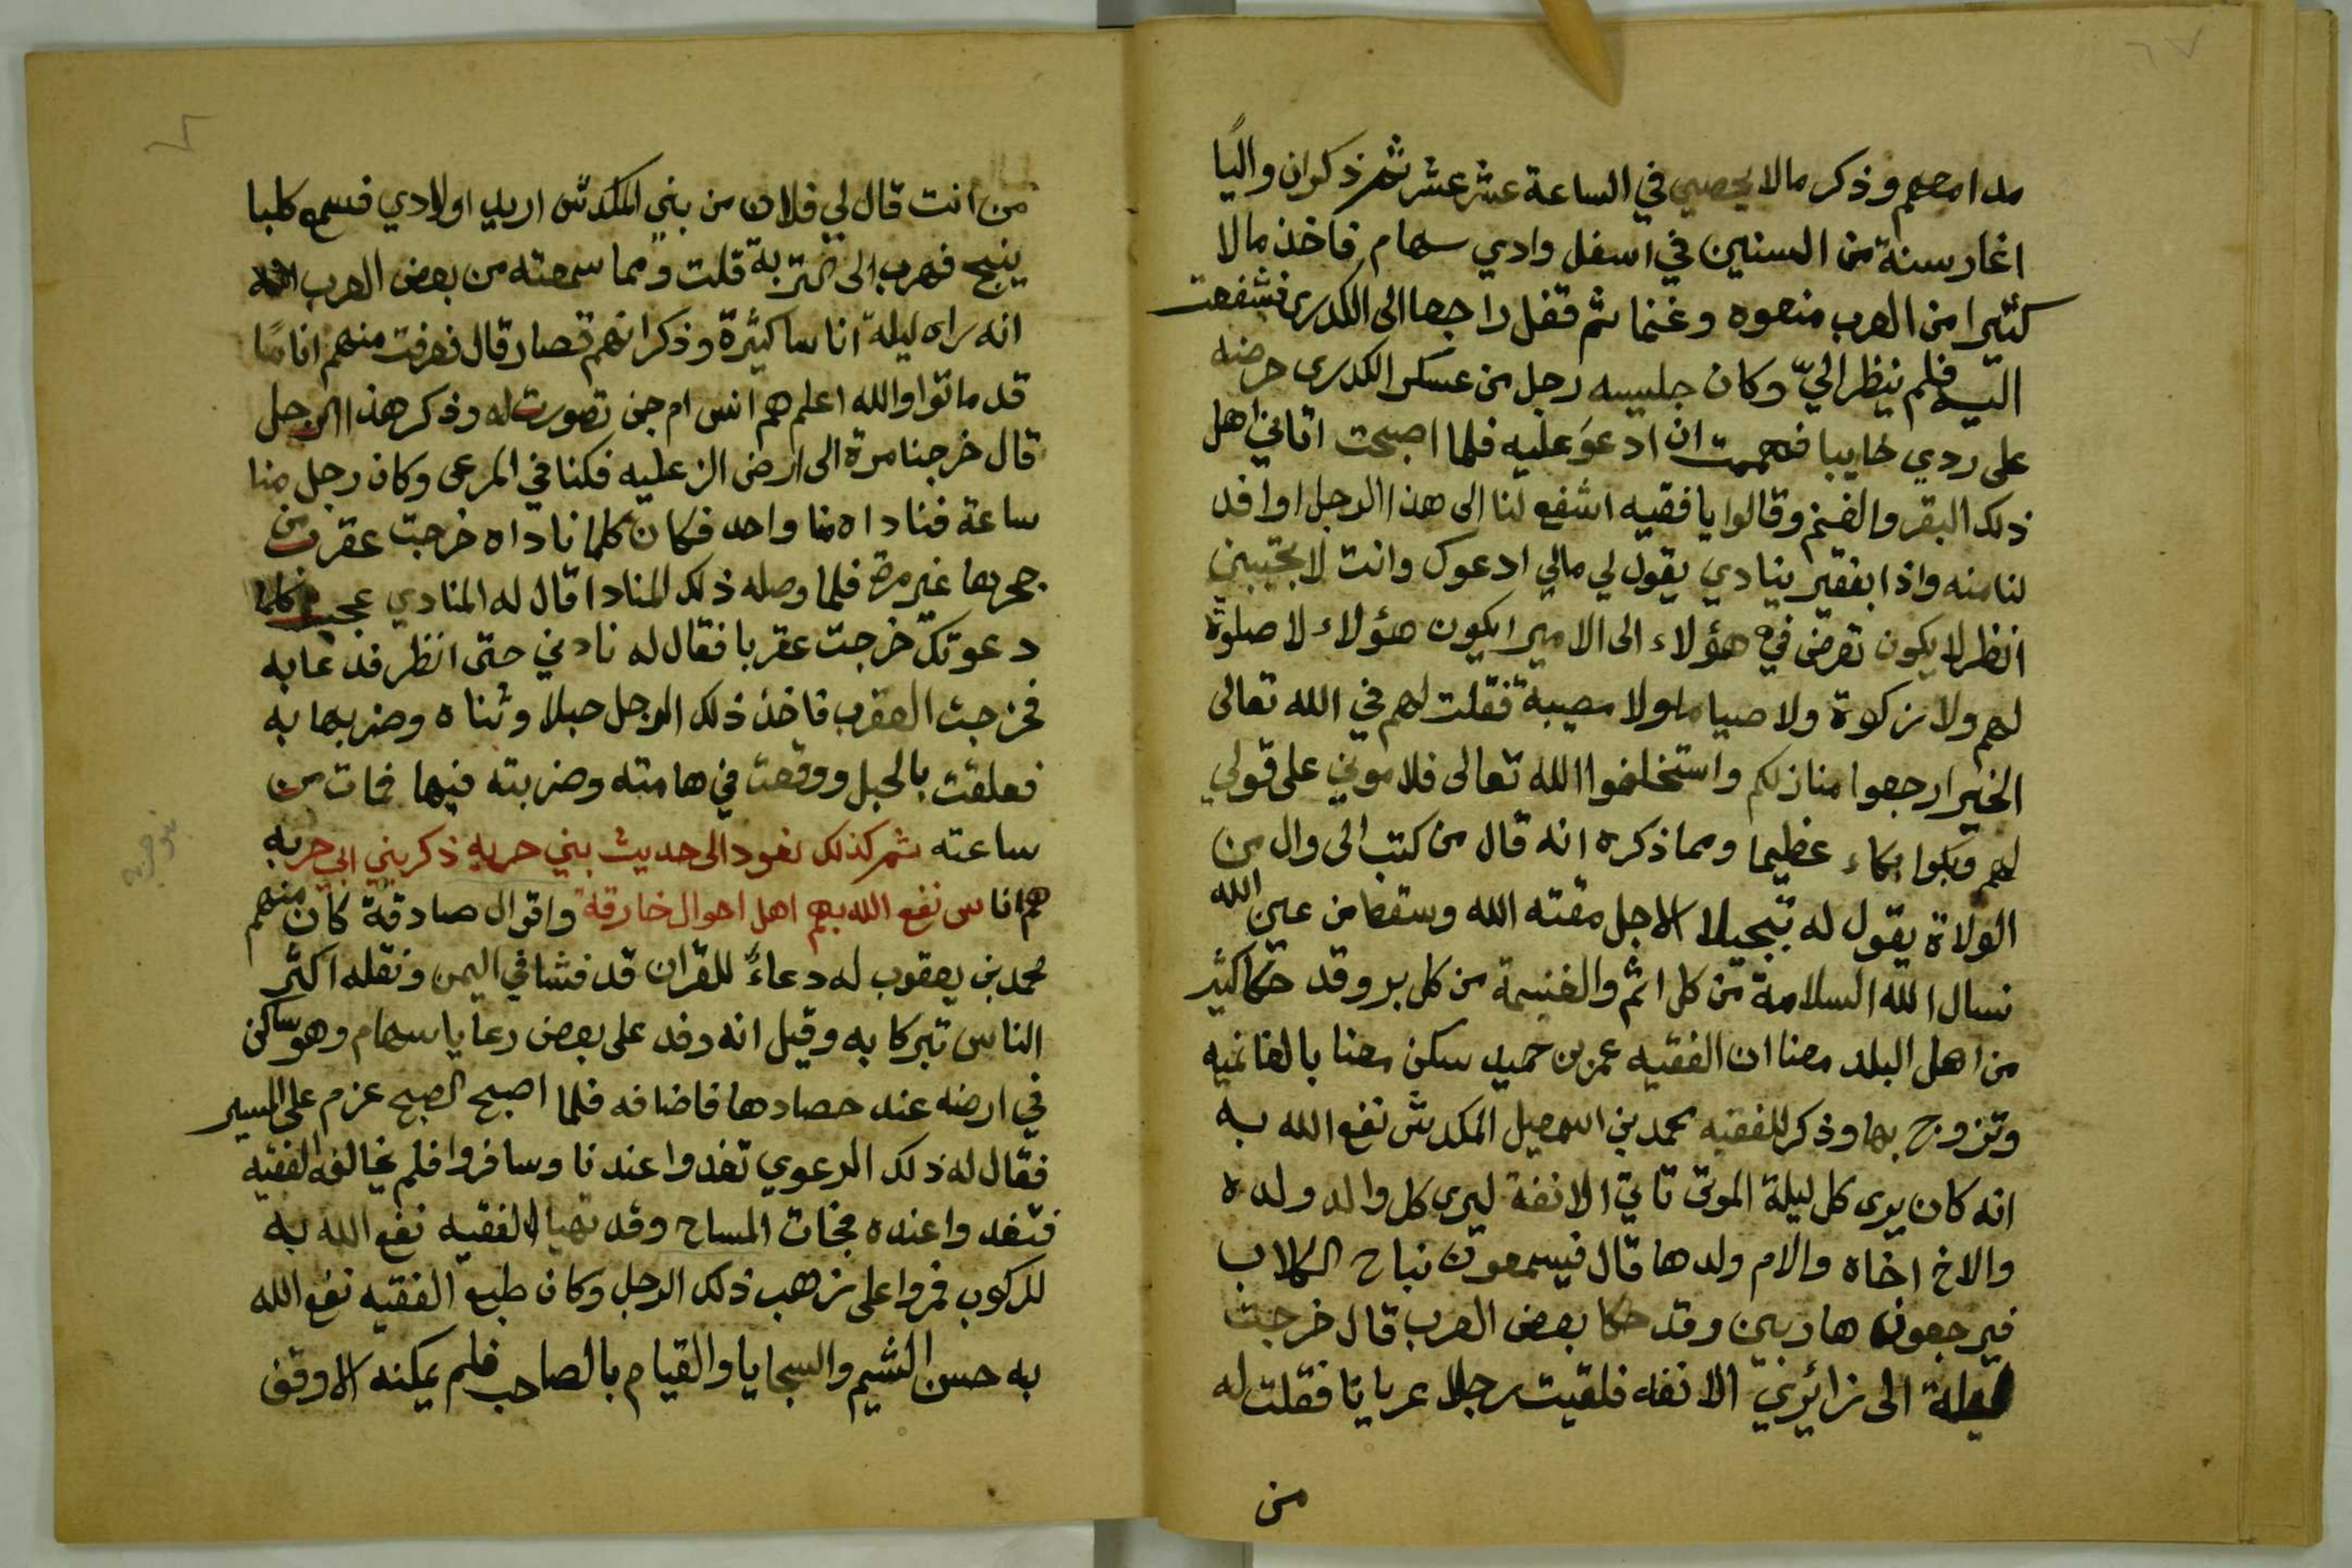 مدامعهم وذكر مالا يحصي في الساعة عشر عشر ثم ذكر ان واليًا
اغار سنة من السنين في اسفل وادي سهام فاخذ مالا
كثيرا من العرب منعوه وغنما ثم قفل راجعا الى الكدرى فشفعت
اليه فلم ينظر اليّ وكان جليسه رجل من عسكر الكدرى حرضه
على ردي خايبا فهممت ان ادعوَ عليه فلما اصبحت اتاني اهل
ذلك البقر والغنم وقالوا يا فقيه اشفع لنا الى هذا الرجل او افد
لنا منه واذا بفقير ينادي يقول لي مالي ادعوك وانت لا تجيبني
انظر لا يكون تعرض في هؤلاء الى الامير ايكون هؤلاء لا صلوة
لهم ولا زكوة ولا صياما ولا مصيبة فقلت لهم في الله تعالى
الخير ارجعوا منازلكم واستخلفوا الله تعالى فلاموني على قولي
لهم وبكوا بكاء عظيما ومما ذكره انه قال من كتب الى وال من
الولاة يقول له تبجيلا الاجل مقته الله وسقط من عين الله
نسال الله السلامة من كل اثم والغنيمة من كل بر وقد حكا كثير
من اهل البلد معنا ان الفقيه عمر بن حميد سكن معنا بالغانميه
وتزوج بها وذكر للفقيه محمد بن اسمعيل المكدش نفع الله به
انه كان يرى كل ليلة الموتى تاتي الانفة ليرى كل والد ولده
والاخ اخاه والام ولدها قال فيسمعون نباح الكلاب
فيرجعون هاربين وقد حكا بعض العرب قال خرجت
ليلة الى زائرني الانفه فلقيت رجلا عريانا فقلت له
من
من انت قال لي فلان من بني المكدش اريد اولادي فسمع كلبا
ينبح فهرب الى التربة قلت ومما سمعته من بعض العرب
انه راه ليلة اناسا كثيرة وذكر انهم قصار قال فعرفت منهم اناسًا
قد ماتوا والله اعلم هم انس ام جن تصورت له وذكر هذا الرجل
قال خرجنا مرة الى ارض الزعليه فكنا في المرعى وكان رجل منا
ساعة فناداه منا واحد فكان كلما ناداه خرجت عقرب من
جحرها غير مرة فلما وصله ذلك المنادا قال له المنادي عجيب كلما
دعوتك خرجت عقربا فقال له نادني حتى انظر فدعا به
فخرجت العقرب فاخذ ذلك الرجل حبلا وثناه وضربها به
فعلقت بالحبل ووقعت في هامته وضربته فيها فمات من
ساعته ثم كذلك نعود الى حديث بني حربه ذكر بني ابي حربه
هم اناس نفع الله بهم اهل احوال خارقة واقوال صادقة كان منهم
محمد بن يعقوب له دعاءٌ للقران قد فشا في اليمن ونقله اكثر
الناس تبركا به وقيل انه وفد على بعض رعايا سهام وهو ساكن
في ارضه عند حصادها فاضافه فلما اصبح الصبح عزم على المسير
فقال له ذلك الرعوي تغدوا عندنا وسافروا فلم يخالفه الفقيه
فتغدوا عنده فجات المساح وقد تهيا الفقيه نفع الله به
للركوب فمروا على زهب ذلك الرجل وكان طبع الفقيه نفع الله
به حسن الشيم والسجايا والقيام بالصاحب فلم يمكنه الا وقف